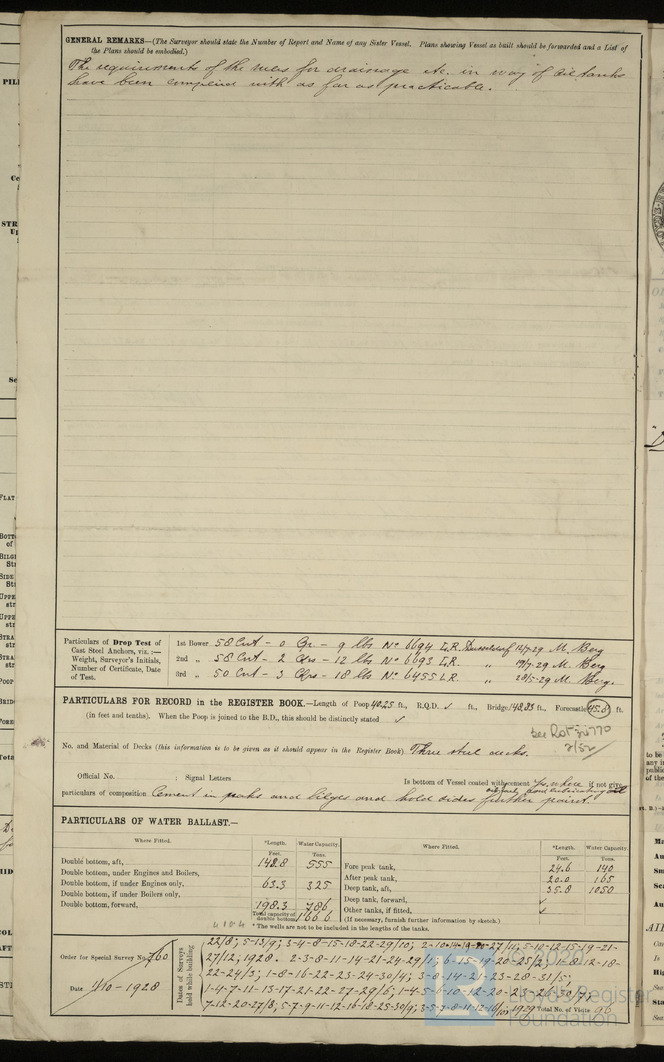 GENERAL REMARKS—(The Surveyor should state the Number of Report and Name of any Sister Vessel. Plans showing Vessel as built should be forwarded and a List of
the Plans should be embodied.)
The requirements of the rules for drainage etc. in way of oil tanks
have been complied with as far as practicable.
Particulars of Drop Test of
Cast Steel Anchors, viz.:—
Weight, Surveyor's Initials,
Number of Certificate, Date
of Test.
1st Bower 58 Cwt - 0 Qr - 9 lbs No 6694 L.R. Dusseldorf 12/7-29 M. Berg
2nd „ 58 Cwt - 2 Qrs - 12 lbs No 6693 L.R. „ 19/7-29 M. Berg
3rd „ 50 Cwt - 3 Qrs - 18 lbs No 6455 L.R. „ 28/5-29 M. Berg.
PARTICULARS FOR RECORD in the REGISTER BOOK.—Length of Poop 40.25 ft., R.Q.D. ✓ ft., Bridge 148.83 ft., Forecastle 45.8 ft.
(in feet and tenths). When the Poop is joined to the B.D., this should be distinctly stated ✓
See Rot
2/52
No. and Material of Decks (this information is to be given as it should appear in the Register Book) Three steel decks.
Official No. ; Signal Letters
Is bottom of Vessel coated with cement if not give
particulars of composition Cement in peaks and bilges and hold sides further paint.
PARTICULARS OF WATER BALLAST.—
Where Fitted. *Length. Water Capacity. Where Fitted. *Length. Water Capacity.
Feet. Tons. Feet. Tons.
Double bottom, aft, 148.8 555
Double bottom, under Engines and Boilers,
Double bottom, if under Engines only, 63.3 325
Double bottom, if under Boilers only,
Double bottom, forward, 198.3 786
Total capacity of double bottom 1666
Fore peak tank, 24.6 140
After peak tank, 20.0 165
Deep tank, aft, 35.8 1050
Deep tank, forward, ✓
Other tanks, if fitted, ✓
(If necessary, furnish further information by sketch.)
* The wells are not to be included in the lengths of the tanks.
Order for Special Survey No. 760
Date 4/10-1928
Dates of Surveys
held while building
22/8; 5-13/9; 3-4-8-15-18-22-29/10; 5-10-12-15-19-21-
27/12, 1928. 2-3-8-11-14-21-24-29/1; 6-15-19-20-25/2; 1-8-12-18-
22-24/3; 1-8-16-22-23-24-30/4; 23-28-31/5;
1-4-7-11-13-17-21-22-27-29/6;
7-12-20-27/8; 5-7-9-11-12-16-18-25-30/9; 1929
Total No. of Visits 96
© 2020
Lloyd's Register
Foundation